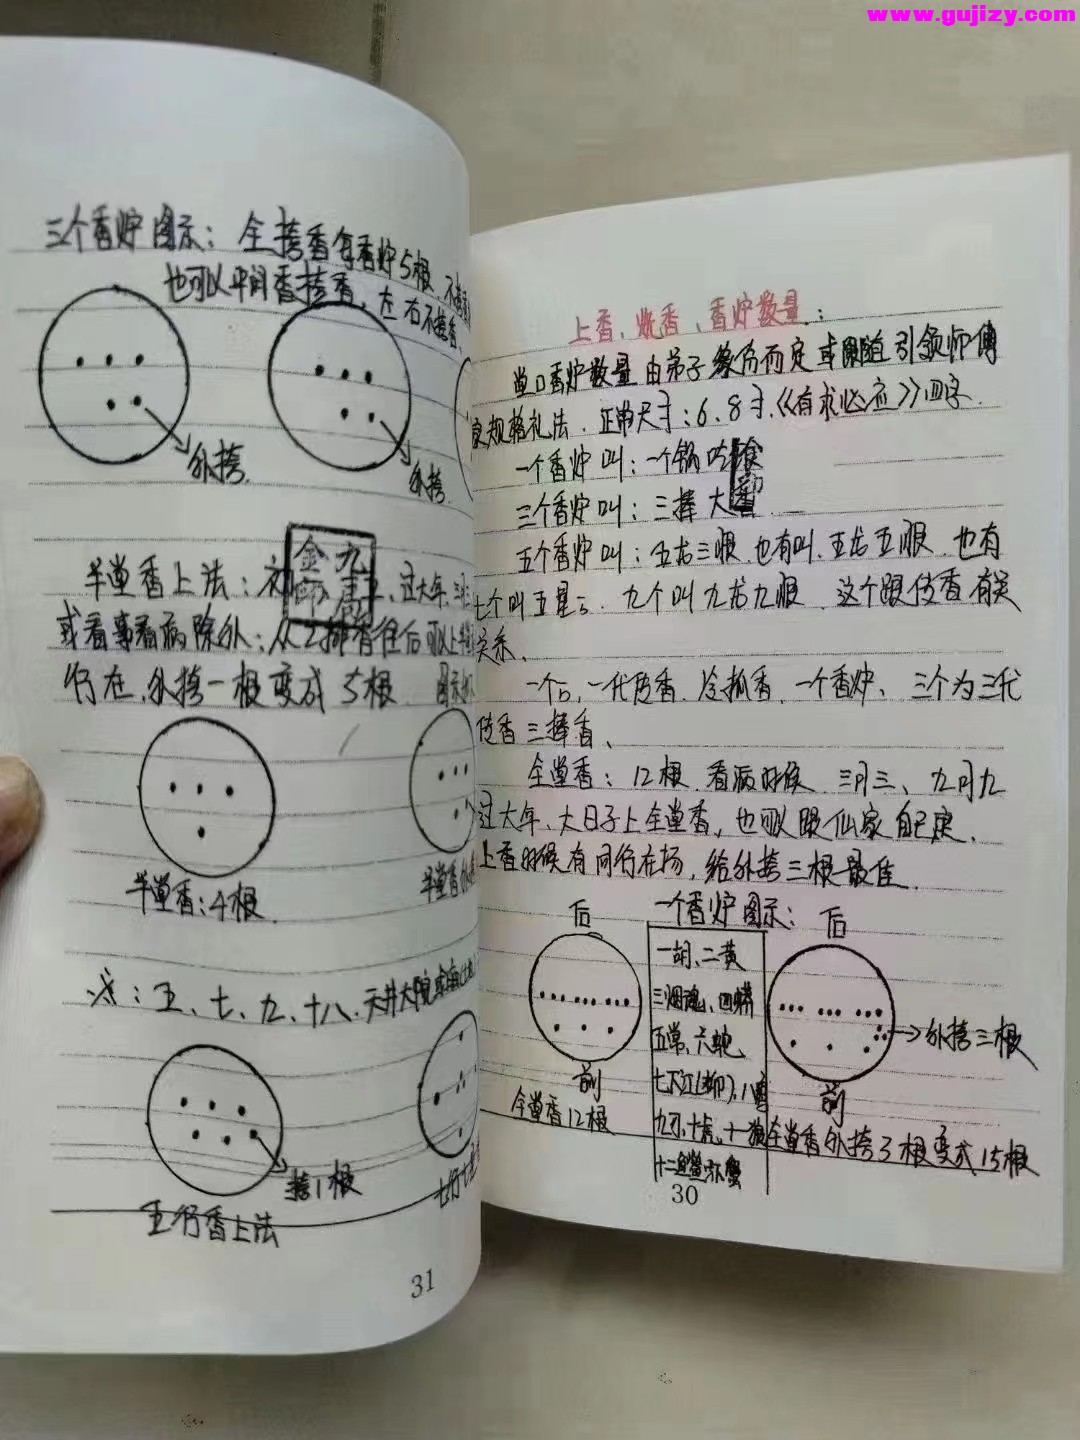 www.gujizy.com
上香、烧香、香炉数量:
堂口香炉数量由弟子缘份而定或跟随引领师傅
家规格礼法.正常尺寸:6.8寸.《有求必应》四字.
一个香炉叫:一个锅吃
三个香炉叫:三捧大香
五个香炉叫:五龙三顺.也有叫.五龙五顺.也有
七个叫五星 .九个叫九龙九顺.这个跟传香有关
关系.
一个 ,一代传香.冷抓香.一个香炉、三个为三代
传香三捧香、
全堂香:12根.看病时候.三月三、九月九
过大年、大日子上全堂香,也可以跟仙家自己定.
上香时候有同行在场,给外挎三根最佳.
一个香炉图示:
后
前
全堂香12根
一胡、二黄
三烟魂、四蟒
五常、六蛇
七下江(獭)、八
九 、十虎、十一狼
十二
后
外挎三根
前
全堂香外挎3根变成15根
30
三个香炉图示:全挎香每香炉5根.
也可以中间香挎香.左右不挎香、
外挎.
外挎.
半堂香上法: 过大年、
或看事看病除外:从2排香往后可以上
行在.外挎一根变成5根.图示
金九
半堂香:4根.
半堂香
注:五、七、九、十八、天井大院
挎1根
五行香上法
31